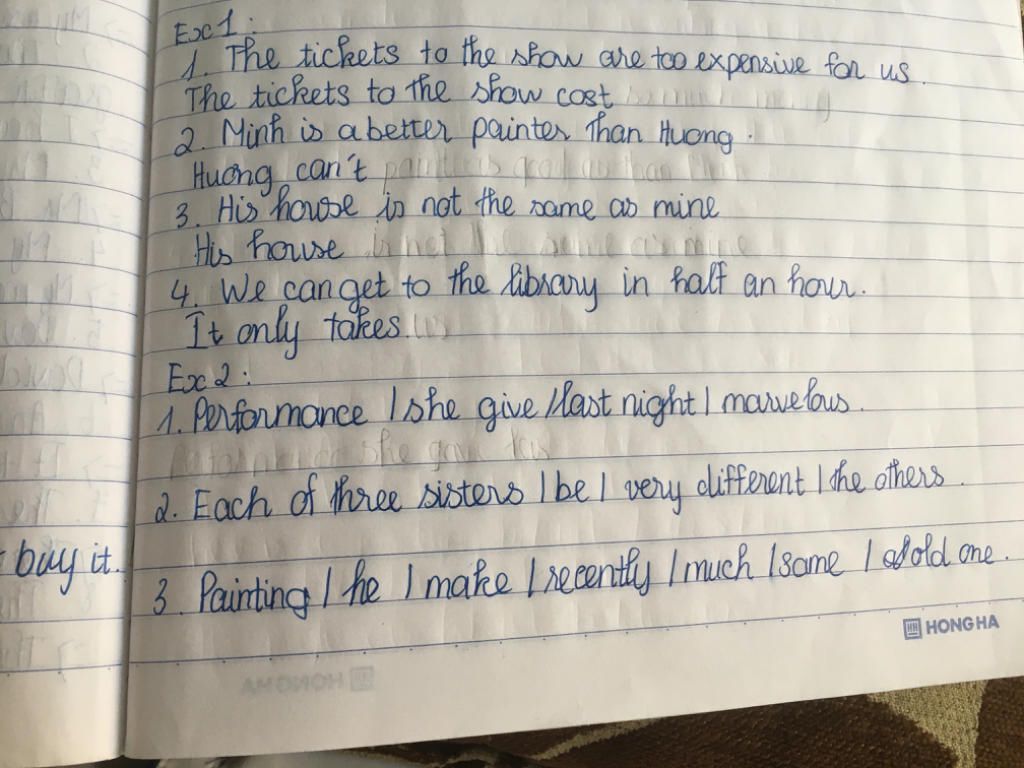 Exc 1:
1. The tickets to the show are too expensive for us.
The tickets to the show cost
2. Minh is a better painter than Huong.
Huong can't
3. His house is not the same as mine
His house is not the same as mine
4. We can get to the library in half an hour.
It only takes us
Ex 2:
1. Performance / she give / last night / marvelous.
she gave
2. Each of three sisters / be / very different / the others.
buy it.
3. Painting / he / make / recently / much / same / old one.
HONG HA